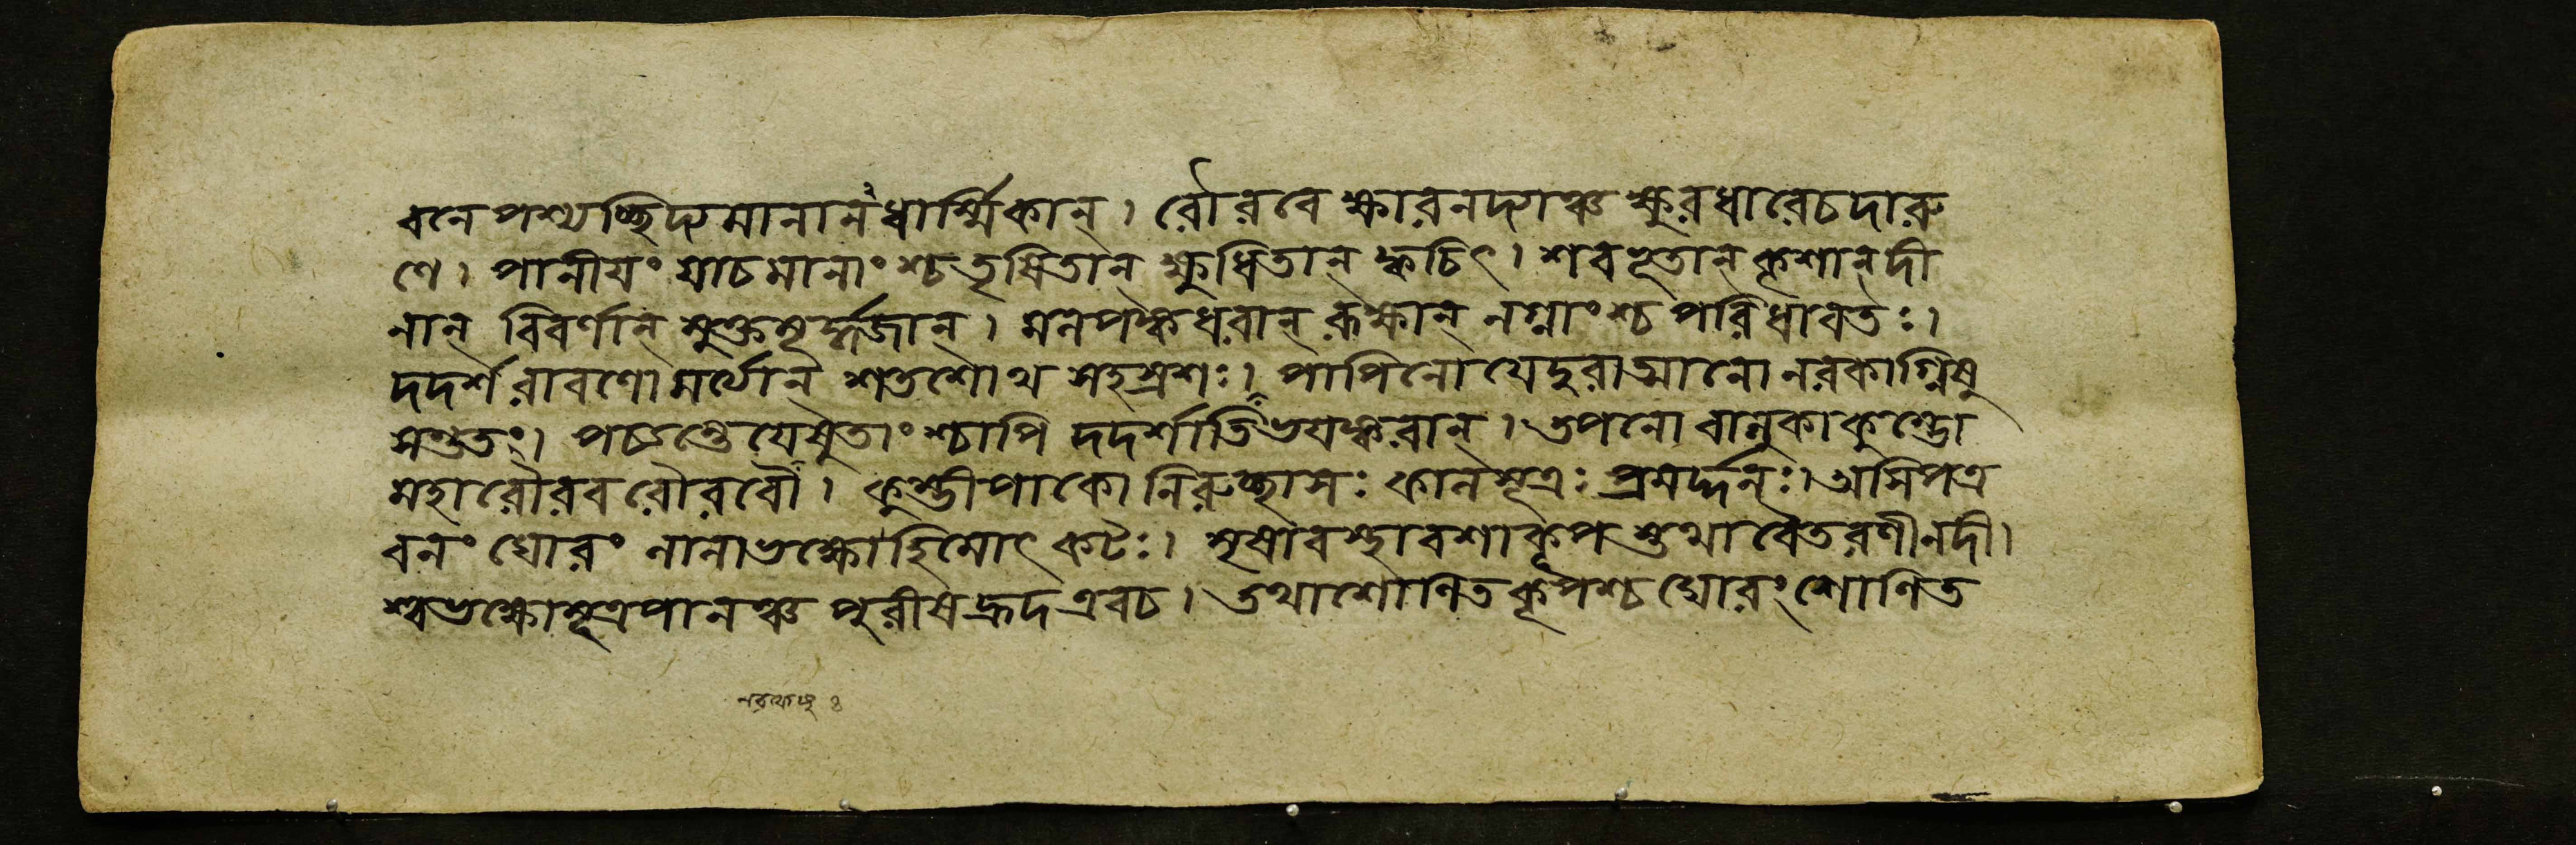 বনে পশ্যচ্ছিদ্যমানানধার্ম্মিকান্। রৌরবে ক্ষারনদ্যাঞ্চ ক্ষুরধারেচদারু
ণে। পানীয়ং যাচমানাংশ্চতৃষিতান্ ক্ষুধিতান্ ক্বচিৎ। শবভূতান্ কৃশান্দী
নান্ বিবর্ণান্ মুক্তমূর্দ্ধজান্। মলপঙ্কধরান্ রুক্ষান্ নগ্নাংশ্চ পরিধাবতঃ।
দদর্শ রাবণো মর্ত্যান্ শতশোথ সহস্রশঃ। পাপিনো যেদুরাত্মানো নরকাগ্নিষু
সংস্থিতাঃ। পচ্যন্তে যেষুতাংশ্চাপি দদর্শাতিভয়ঙ্করান্। তপনো বালুকাকুম্ভো
মহারৌরবরৌরবৌ। কুম্ভীপাকো নিরুচ্ছ্বাসঃ কালসূত্রঃ প্রমর্দ্দনঃ। অসিপত্র
বনং ঘোরং নানাভক্ষোহিমোৎকটঃ। মূষাবস্থাবশাকূপস্তথা বৈতরণীনদী।
শ্বভক্ষোমূত্রপানঞ্চ পুরীষহ্রদএবচ। তথাশোণিতকূপশ্চ ঘোরং শোণিত